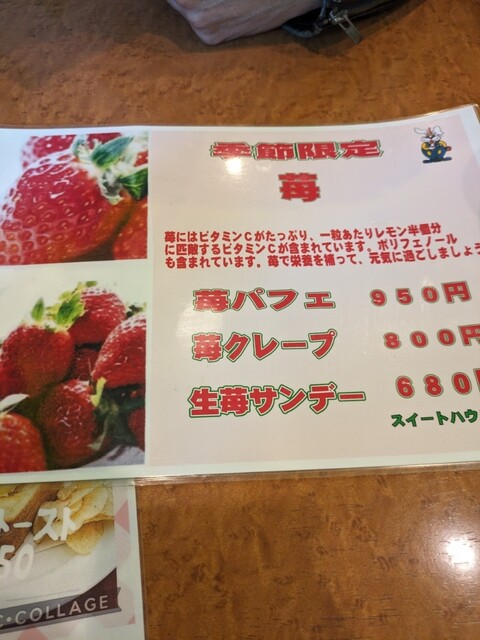 季節限定
苺
苺にはビタミンCがたっぷり、一粒あたりレモン半個分
に匹敵するビタミンCが含まれています。ポリフェノール
も含まれています。苺で栄養を補って、元気に過ごしましょう
苺パフェ 950円
苺クレープ 800円
生苺サンデー 680円
スイートハウ
ースト
50
C・COLLAGE